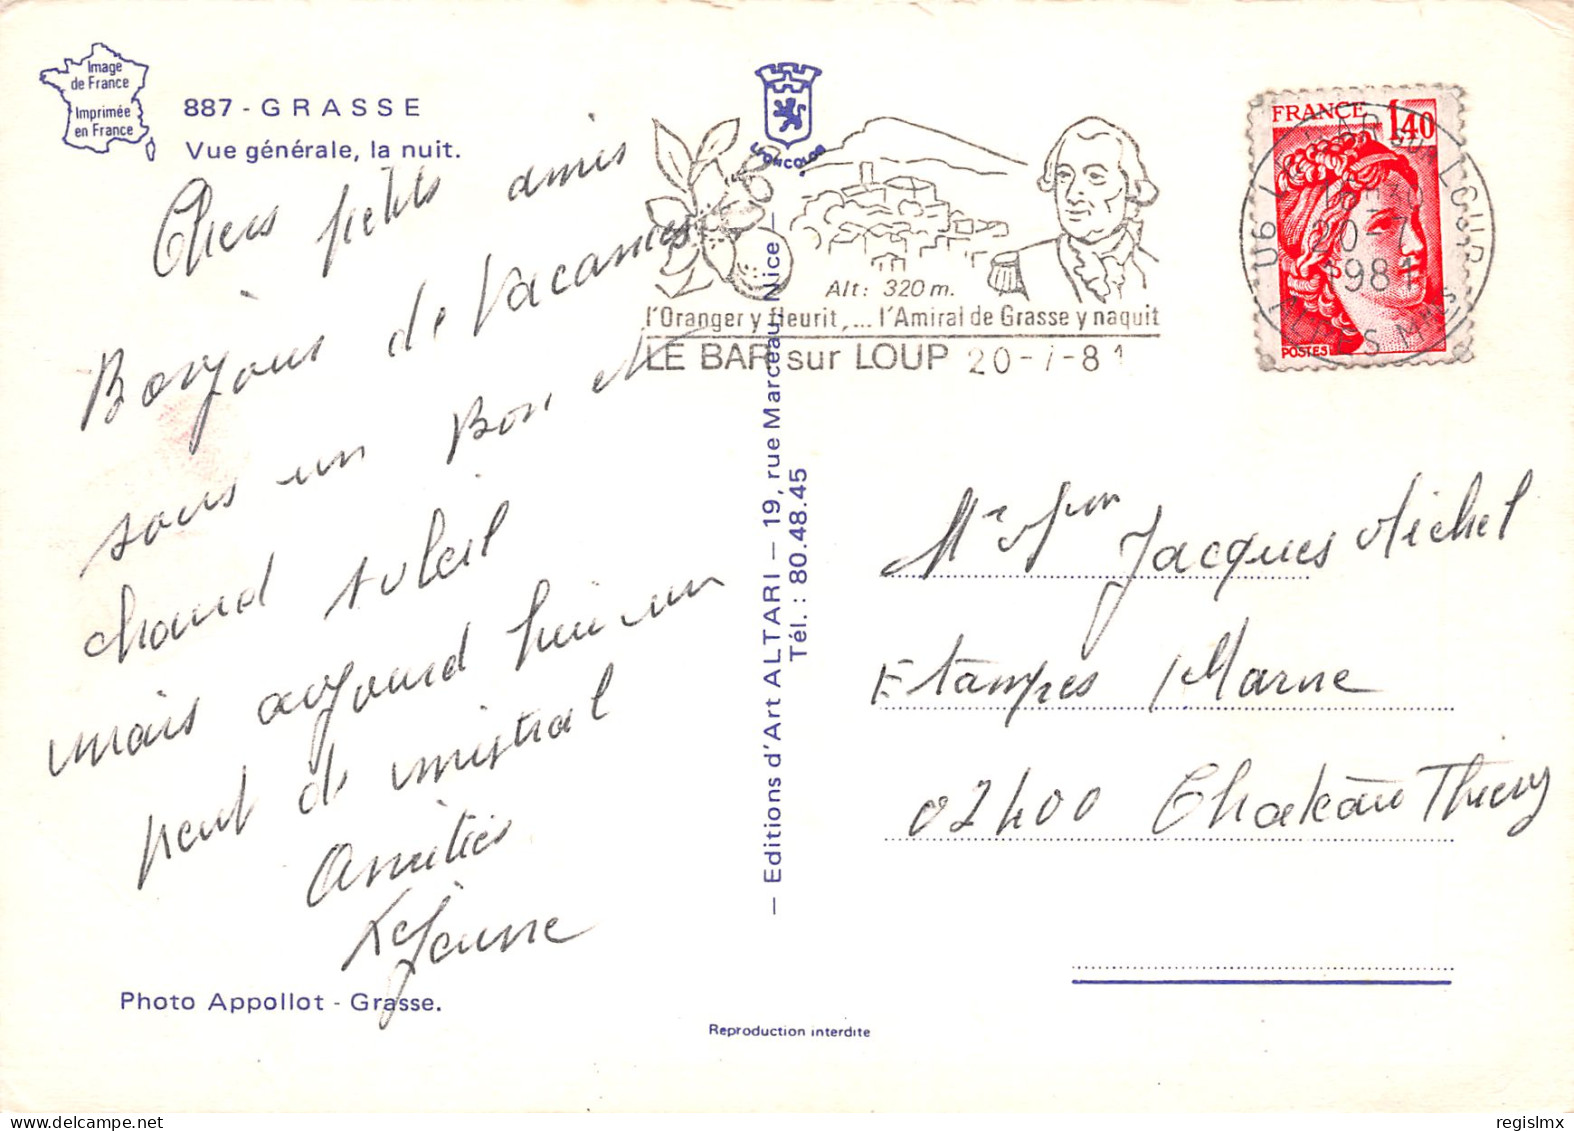 Image
de France
Imprimée
en France
887 - GRASSE
Vue générale, la nuit.
Chers petits amis
Bonjour de Vacances
sous un Bon et
chaud soleil
mais aujourd hui un
peut de mistral
Amitiés
LeJeune
Photo Appollot - Grasse.
LYONCOLOR
— Editions d'Art ALTARI — 19, rue Marceau, Nice —
Tél. : 80.48.45
Reproduction interdite
Alt: 320 m.
l'Oranger y fleurit,... l'Amiral de Grasse y naquit
LE BAR sur LOUP 20-7-81
FRANCE 1,40
POSTES
06 LE BAR SUR LOUP
20-7
1981
ALPES MMES
Jacques Michel
Etampes / Marne
02400 Chateau Thierry
regislmx